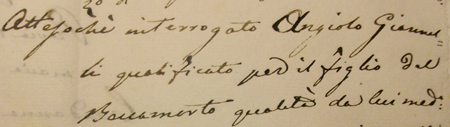 Attesochè interrogato Angiolo Giannel=
li qualificato per il figlio del
Boccamorto qualità da lui med: